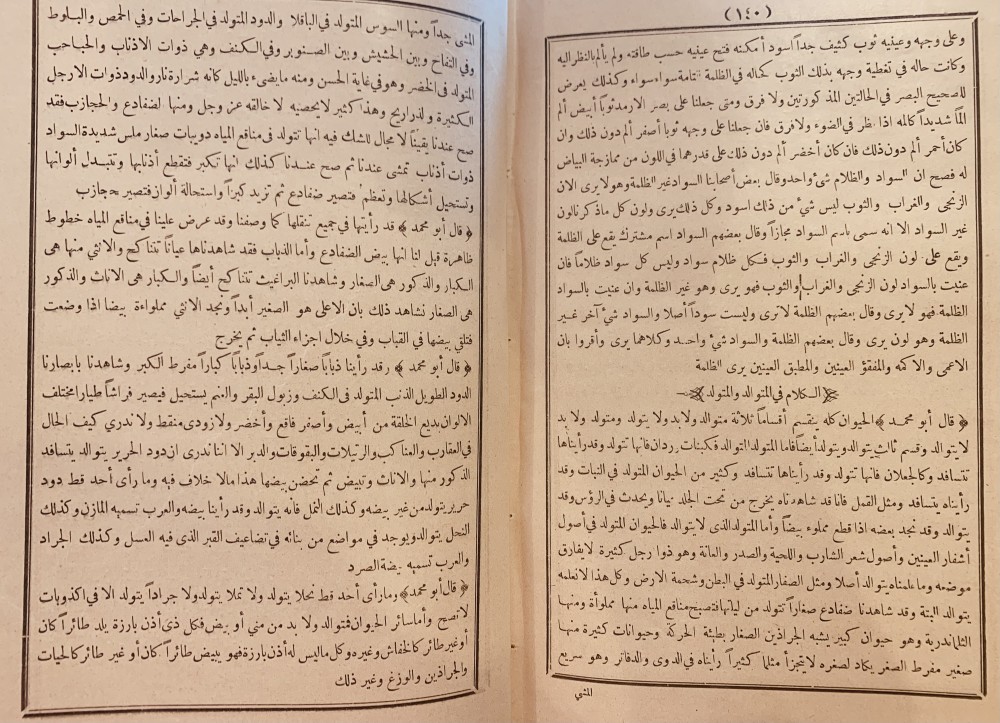 (١٤٠)
وعلى وجهه وعينيه ثوب كثيف جداً اسود أمكنه فتح عينيه حسب طاقته ولم يألم بالنظر اليه
وكانت حاله في تغطية وجهه بذلك الثوب كحاله في الظلمة التامة سواء سواء وكذلك يعرض
للصحيح البصر في الحالتين المذكورتين ولا فرق ومتى جعلنا على بصر الارمد ثوباً أبيض ألم
ألماً شديداً كالمه اذا نظر في الضوء ولا فرق فان جعلنا على وجهه ثوباً أصفر ألم دون ذلك وان
كان أحمر ألم دون ذلك فان كان أخضر ألم دون ذلك على قدر هما في اللون من ممازجة البياض
له فصح ان السواد والظلام شئ واحد وقال بعض أصحابنا السواد غير الظلمة وهو لا يرى الان
الزنجي والغراب والثوب ليس شئ من ذلك اسود وكل ذلك يرى ولون كل ما ذكرنا لون
غير السواد الا انه سمى باسم السواد مجازاً وقال بعضهم السواد اسم مشترك يقع على الظلمة
ويقع على لون الزنجي والغراب والثوب فكل ظلام سواد وليس كل سواد ظلاماً فان
عنيت بالسواد لون الزنجي والغراب والثوب فهو يرى وهو غير الظلمة وان عنيت بالسواد
الظلمة فهو لا يرى وقال بعضهم الظلمة لا ترى وليست سوداً أصلا والسواد شئ آخر غير
الظلمة وهو لون يرى وقال بعضهم الظلمة والسواد شئ واحد وكلاهما يرى وأقروا بان
الاعمى والا كمه والمفقؤ العينين والمطبق العينين يرى الظلمة
الكلام في المتوالد والمتولد
﴿ قال أبو محمد ﴾ الحيوان كله ينقسم أقساماً ثلاثة متوالد ولا بد ولا يتولد ومتولد ولا بد
لا يتوالد وقسم ثالث يتوالد ويتولد أيضاً فاما المتولد المتوالد فكبنات وردان فانها تتولد وقد رأيناها
تتسافد وكالجعلان فانها تتولد وقد رأيناها تتسافد وكثير من الحيوان المتولد في النبات وقد
رأيناه يتسافد ومثل القمل فانا قد شاهدناه يخرج من تحت الجلد عياناً ويحدث في الرؤس وقد
يتوالد وقد نجد بعضه اذا قطع مملوء بيضاً وأما المتولد الذى لا يتوالد فالحيوان المتولد في أصول
أشفار العينين وأصول شعر الشارب واللحية والصدر والعانة وهو ذوا رجل كثيرة لا يفارق
موضعه وما علمناه يتوالد أصلا ومثل الصفار المتولد في البطن وشحمة الارض وكل هذا لا نعلمه
يتوالد البتة وقد شاهدنا ضفادع صغاراً تتولد من ليلتها فتصبح منافع المياه منها مملوأة ومنها
وهو حيوان كبير يشبه الجراذين الصغار بطيئة الحركة وحيوانات كثيرة منها
صغير مفرط الصغر يكاد لصغره لا يتجزأ مثلما كثيراً رأيناه في الدوى والدفاتر وهو سريع
المشي
المشى جداً ومنها السوس المتولد في الباقلا والدود المتولد في الجراحات وفي الحمص والبلوط
وفي التفاح وبين الحشيش وبين الصنوبر وفي الكنف وهي ذوات الاذناب والحباحب
المتولد فى الخضر وهو في غاية الحسن ومنه ما يضيء بالليل كانه شرارة نار والدود ذوات الارجل
الكثيرة ولذراريح وهذا كثير لا يحصيه الا خالقه عز وجل ومنها الضفادع والحجازب فقد
صح عندنا يقيناً لا مجال للشك فيه انها تتولد في منافع المياه دويبات صغار ملس شديدة السواد
ذوات أذناب تمشى عندنا ثم صح عندنا كذلك انها تكبر فتقطع أذنابها وتتبدل ألوانها
وتستحيل أشكالها وتعظم فتصير ضفادع ثم تزيد كبراً واستحالة ألوان فتصير حجازب
﴿ قال أبو محمد ﴾ قد رأيتها في جميع تنقلها كما وصفنا وقد عرض علينا في منافع المياه خطوط
ظاهرة قيل لنا انها بيض الضفادع وأما الذباب فقد شاهدناها عياناً تتناكح والانثي منها هى
الكبار والذكور هى الصغار وشاهدنا البراغيث تتناكح أيضاً والكبار هى الاناث والذكور
هى الصغار نشاهد ذلك بان الاعلى هو الصغير أبداً ونجد الانثي مملوأة بيضا اذا وضعت
فتلقي بيضها في القباب وفي خلال اجزاء الثياب ثم يخرج
﴿ قال أبو محمد ﴾ وقد رأينا ذباباً صغاراً جداً وذباباً كباراً مفرط الكبر وشاهدنا بابصارنا
الدود الطويل الذنب المتولد في الكنف وزبول البقر والغنم يستحيل فيصير فراشاً طيارا مختلف
الالوان بديع الخلقة من أبيض وأصفر فاقع وأخضر ولازوردى منقط ولا ندري كيف الحال
في العقارب والعناكب والرتيلات والبقوقات والدبر الا اننا ندرى ان دود الحرير يتوالد يتسافد
الذكور منها والاناث وتبيض ثم تحضن بيضها هذا مالا خلاف فيه وما رأى أحد قط دود
حرير يتولد من غير بيضه وكذلك النمل فأنه يتوالد وقد رأينا بيضه والعرب تسميه المازن وكذلك
النحل يتوالد ويوجد في مواضع من بنائه في تضاعيف القبر الذى فيه العسل وكذلك الجراد
والعرب تسميه بيضة الصرد
﴿ قال أبو محمد ﴾ وما رأى أحد قط نحلا يتولد ولا نملا يتولد ولا جراداً يتولد الا في اكذوبات
لا تصح وأما سائر الحيوان فمتوالد ولا بد من مني أو بيض فكل ذى أذن بارزة يلد طائراً كان
أو غير طائر كالخفاش وغيره وكل ما ليس له أذن بارزة فهو يبيض طائراً كان أو غير طائر كالحيات
والجراذين والوزغ وغير ذلك